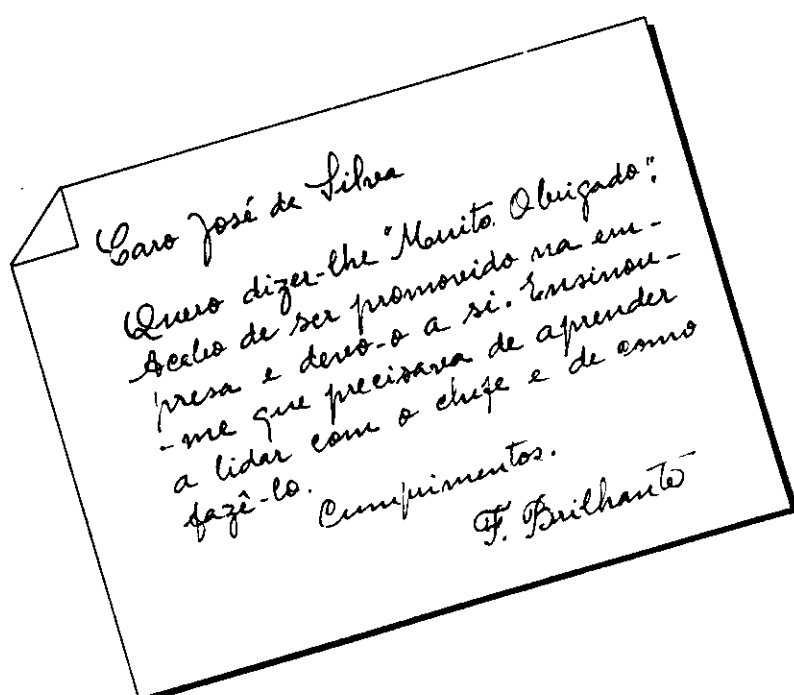 Caro José da Silva
Quero dizer-lhe "Muito Obrigado".
Acabo de ser promovido na em-
presa e devo-o a si. Ensinou-
-me que precisava de aprender
a lidar com o chefe e de como
fazê-lo.
Cumprimentos.
F. Brilhante